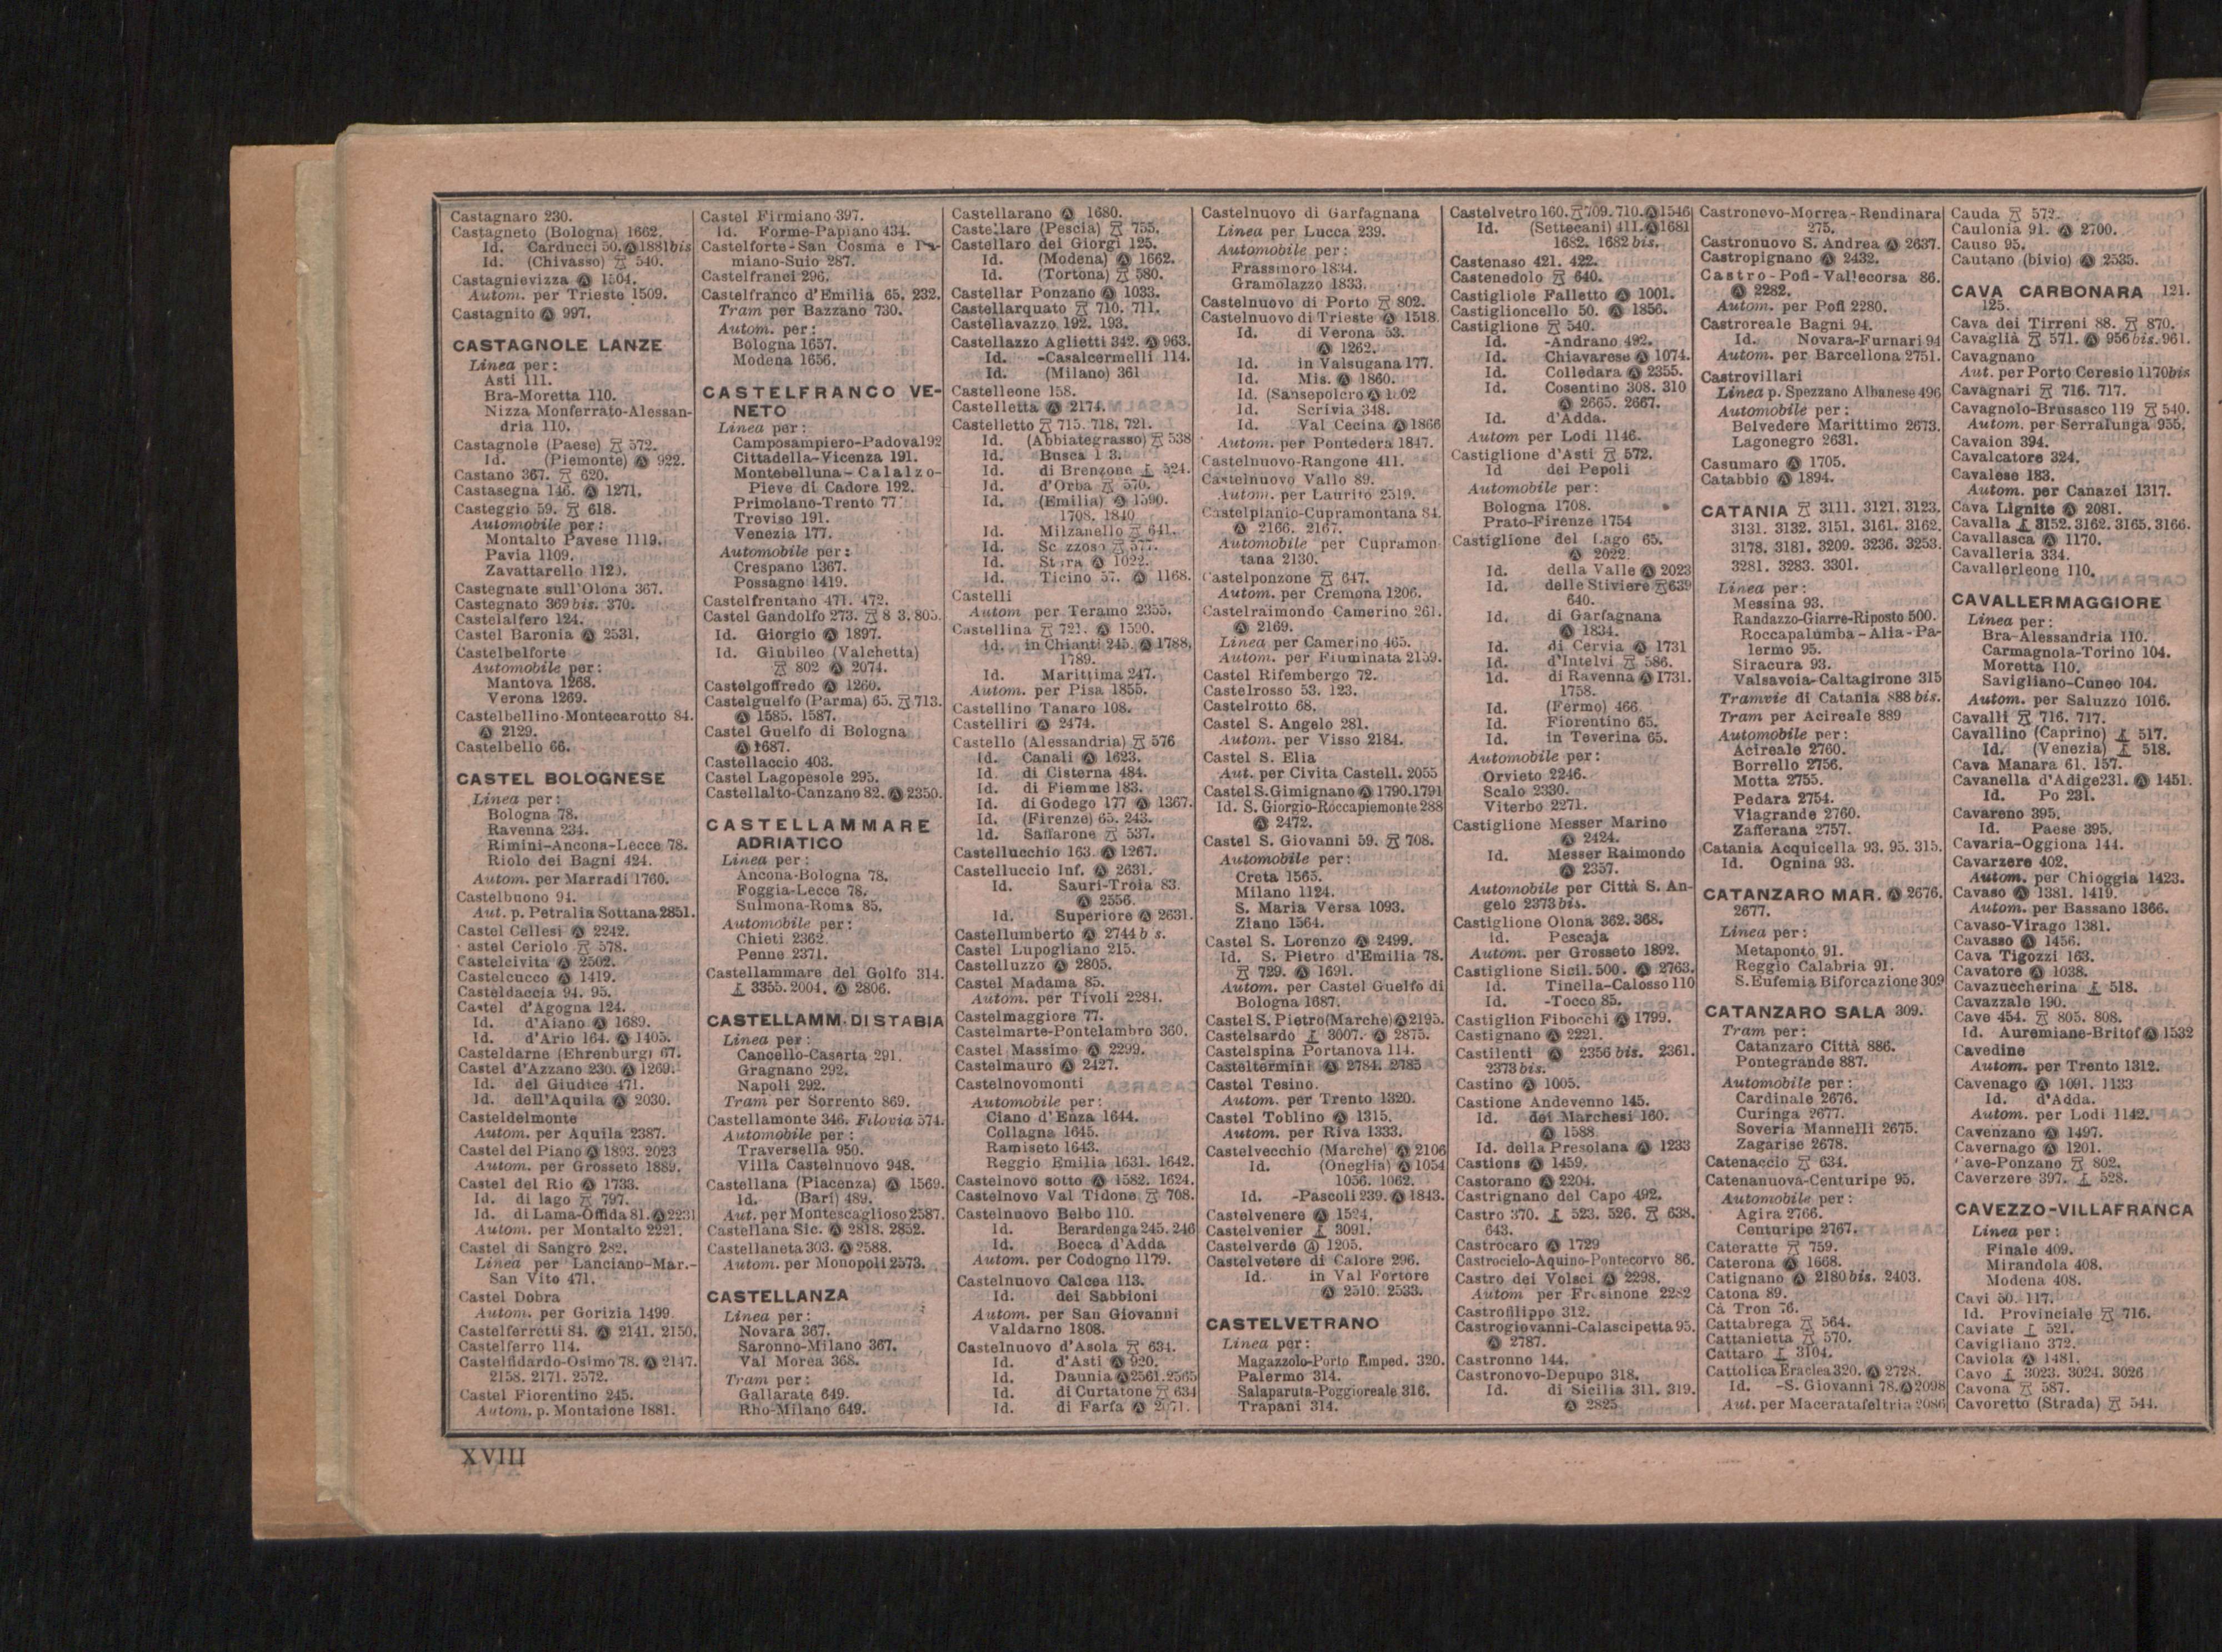 Castagnaro 230.
Castagneto (Bologna) 1662.
Id. Carducci 50. Ⓐ 1881 bis
Id. (Chivasso) 540.
Castagnievizza Ⓐ 1504.
Autom. per Trieste 1509.
Castagnito Ⓐ 997.
CASTAGNOLE LANZE
Linea per:
Asti 111.
Bra-Moretta 110.
Nizza Monferrato-Alessan-
dria 110.
Castagnole (Paese) 572.
Id. (Piemonte) Ⓐ 922.
Castano 367. 620.
Castasegna 146. Ⓐ 1271.
Casteggio 59. 618.
Automobile per:
Montalto Pavese 1119.
Pavia 1109.
Zavattarello
Castegnate sull'Olona 367.
Castegnato 369 bis. 370.
Castelalfero 124.
Castel Baronia Ⓐ 2531.
Castelbelforte
Automobile per:
Mantova 1268.
Verona 1269.
Castelbellino-Montecarotto 84.
Ⓐ 2129.
Castelbello 66.
CASTEL BOLOGNESE
Linea per:
Bologna 78.
Ravenna 234.
Rimini-Ancona-Lecce 78.
Riolo dei Bagni 424.
Autom. per Marradi 1760.
Castelbuono 94.
Aut. p. Petralia Sottana 2851.
Castel Cellesi Ⓐ 2242.
astel Ceriolo 578.
Castelcivita Ⓐ 2502.
Castelcucco Ⓐ 1419.
Casteldaccia 94. 95.
Castel d'Agogna 124.
Id. d'Aiano Ⓐ 1689.
Id. d'Ario 164. Ⓐ 1405.
Casteldarne (Ehrenburg) 67.
Castel d'Azzano 230. Ⓐ 1269.
Id. del Giudice 471.
Id. dell'Aquila Ⓐ 2030.
Casteldelmonte
Autom. per Aquila 2387.
Castel del Piano Ⓐ 1893. 2023
Autom. per Grosseto 1889.
Castel del Rio Ⓐ 1733.
Id. di lago 797.
Id. di Lama-Offida 81. Ⓐ 2231
Autom. per Montalto 2221.
Castel di Sangro 282.
Linea per Lanciano-Mar.-
San Vito 471.
Castel Dobra
Autom. per Gorizia 1499.
Castelferretti 84. Ⓐ 2141. 2150.
Castelferro 114.
Castelfidardo-Osimo 78. Ⓐ 2147.
2158. 2171. 2572.
Castel Fiorentino 245.
Autom. p. Montaione 1881.
Castel Firmiano 397.
Id. Forme-Papiano 434.
Castelforte-San Cosma e Da-
miano-Suio 287.
Castelfranci 296.
Castelfranco d'Emilia 65. 232.
Tram per Bazzano 730.
Autom. per:
Bologna 1657.
Modena 1656.
CASTELFRANCO VE-
NETO
Linea per:
Camposampiero-Padova 192
Cittadella-Vicenza 191.
Montebelluna-Calalzo-
Pieve di Cadore 192.
Primolano-Trento 77
Treviso 191.
Venezia 177.
Automobile per:
Crespano 1367.
Possagno 1419.
Castelfrentano 471. 472.
Castel Gandolfo 273. 8 3. 805.
Id. Giorgio Ⓐ 1897.
Id. Giubileo (Valchetta)
802 Ⓐ 2074.
Castelgoffredo Ⓐ 1260.
Castelguelfo (Parma) 65. 713.
Ⓐ 1585. 1587.
Castel Guelfo di Bologna
Ⓐ 1687.
Castellaccio 403.
Castel Lagopesole 295.
Castellalto-Canzano 82. Ⓐ 2350.
CASTELLAMMARE
ADRIATICO
Linea per:
Ancona-Bologna 78.
Foggia-Lecce 78.
Sulmona-Roma 85.
Automobile per:
Chieti 2362.
Penne 2371.
Castellammare del Golfo 314.
3355. 2004. Ⓐ 2806.
CASTELLAMM. DI STABIA
Linea per:
Cancello-Caserta 291.
Gragnano 292.
Napoli 292.
Tram per Sorrento 869.
Castellamonte 346. Filovia 574.
Automobile per:
Traversella 950.
Villa Castelnuovo 948.
Castellana (Piacenza) Ⓐ 1569.
Id. (Bari) 489.
Aut. per Montescaglioso 2587.
Castellana Sic. Ⓐ 2818. 2852.
Castellaneta 303. Ⓐ 2588.
Autom. per Monopoli 2573.
CASTELLANZA
Linea per:
Novara 367.
Saronno-Milano 367.
Val Morea 368.
Tram per:
Gallarate 649.
Rho-Milano 649.
Castellarano Ⓐ 1680.
Castellare (Pescia) 755.
Castellaro dei Giorgi 125.
Id. (Modena) Ⓐ 1662.
Id. (Tortona) 580.
Castellar Ponzano Ⓐ 1033.
Castellarquato 710. 711.
Castellavazzo 192. 193.
Castellazzo Aglietti 342. Ⓐ 963.
Id. -Casalcermelli 114.
Id. (Milano) 361
Castelleone 158.
Castelletta Ⓐ 2174.
Castelletto 715. 718. 721.
Id. (Abbiategrasso) 538
Id. Busca 1 3.
Id. di Brenzone 524.
Id. d'Orba 570.
Id. (Emilia) Ⓐ 1590.
1708. 1840
Id. Milzanello 641.
Id.
Id. Ⓐ 1022.
Id. Ticino 57. Ⓐ 1168.
Castelli
Autom per Teramo 2355.
Castellina 721. Ⓐ 1590.
id. in Chianti 245. Ⓐ 1788.
1789.
Id. Marittima 247.
Autom. per Pisa 1855.
Castellino Tanaro 108.
Castelliri Ⓐ 2474.
Castello (Alessandria) 576
Id. Canali Ⓐ 1623.
Id. di Cisterna 484.
Id. di Fiemme 183.
Id. di Godego 177 Ⓐ 1367.
Id. (Firenze) 65. 243.
Id. Saffarone 537.
Castellucchio 163. Ⓐ 1267.
Castelluccio Inf. Ⓐ 2631.
Id. Sauri-Troia 83.
Ⓐ 2556.
Id. Superiore Ⓐ 2631.
Castellumberto Ⓐ 2744 b s.
Castel Lupogliano 215.
Castelluzzo Ⓐ 2805.
Castel Madama 85.
Autom. per Tivoli 2284.
Castelmaggiore 77.
Castelmarte-Pontelambro 360.
Castel Massimo Ⓐ 2299.
Castelmauro Ⓐ 2427.
Castelnovomonti
Automobile per:
Ciano d'Enza 1644.
Collagna 1645.
Ramiseto 1643.
Reggio Emilia 1631. 1642.
Castelnovo sotto Ⓐ 1582. 1624.
Castelnovo Val Tidone 708.
Castelnuovo Belbo 110.
Id. Berardenga 245. 246
Id. Bocca d'Adda
Autom. per Codogno 1179.
Castelnuovo Calcea 113.
Id. dei Sabbioni
Autom. per San Giovanni
Valdarno 1808.
Castelnuovo d'Asola 634.
Id. d'Asti Ⓐ 920.
Id. Daunia Ⓐ 2561. 2565
Id. di Curtatone 634
Id. di Farfa Ⓐ
Castelnuovo di Garfagnana
Linea per Lucca 239.
Automobile per:
Frassinoro 1834.
Gramolazzo 1833.
Castelnuovo di Porto 802.
Castelnuovo di Trieste Ⓐ 1518.
Id. di Verona 53.
Ⓐ 1262.
Id. in Valsugana 177.
Id. Mis. Ⓐ 1860.
Id. (Sansepolcro Ⓐ
Id. Scrivia 348.
Id. Val Cecina Ⓐ 1866
Autom. per Pontedera 1847.
Castelnuovo-Rangone 411.
Castelnuovo Vallo 89.
Autom. per Laurito 2519.
Castelplanio-Cupramontana 84.
Ⓐ 2166. 2167.
Automobile per Cupramon-
tana 2130.
Castelponzone 647.
Autom. per Cremona 1206.
Castelraimondo Camerino 261.
Ⓐ 2169.
Linea per Camerino 465.
Autom. per Fiuminata 2159.
Castel Rifembergo 72.
Castelrosso 53. 123.
Castelrotto 68.
Castel S. Angelo 281.
Autom. per Visso 2184.
Castel S. Elia
Aut. per Civita Castell. 2055
Castel S. Gimignano Ⓐ 1790. 1791
Id. S. Giorgio-Roccapiemonte 288
Ⓐ 2472.
Castel S. Giovanni 59. 708.
Automobile per:
Creta 1565.
Milano 1124.
S. Maria Versa 1093.
Ziano 1564.
Castel S. Lorenzo Ⓐ 2499.
Id. S. Pietro d'Emilia 78.
729. Ⓐ 1691.
Autom. per Castel Guelfo di
Bologna 1687.
Castel S. Pietro (Marche) Ⓐ 2195.
Castelsardo 3007. Ⓐ 2875.
Castelspina Portanova 114.
Casteltermini Ⓐ 2784. 2785
Castel Tesino.
Autom. per Trento 1320.
Castel Toblino Ⓐ 1315.
Autom. per Riva 1333.
Castelvecchio (Marche) Ⓐ 2106
Id. (Oneglia) Ⓐ 1054
1056. 1062.
Id. -Pascoli 239. Ⓐ 1843.
Castelvenere Ⓐ 1524.
Castelvenier 3091.
Castelverde Ⓐ 1205.
Castelvetere di Calore 296.
Id. in Val Fortore
Ⓐ 2510. 2533.
CASTELVETRANO
Linea per:
Magazzolo-Porto Emped. 320.
Palermo 314.
Salaparuta-Poggioreale 316.
Trapani 314.
Castelvetro 160. 709. 710. Ⓐ 1546
Id. (Settecani) 411. Ⓐ 1681
1682. 1682 bis.
Castenaso 421. 422.
Castenedolo 640.
Castigliole Falletto Ⓐ 1001.
Castiglioncello 50. Ⓐ 1856.
Castiglione 540.
Id. -Andrano 492.
Id. Chiavarese Ⓐ 1074.
Id. Colledara Ⓐ 2355.
Id. Cosentino 308. 310
Ⓐ 2665. 2667.
Id. d'Adda.
Autom per Lodi 1146.
Castiglione d'Asti 572.
Id dei Pepoli
Automobile per:
Bologna 1708.
Prato-Firenze 1754
Castiglione del Lago 65.
Ⓐ 2022.
Id. della Valle Ⓐ 2023
Id. delle Stiviere 639
640.
Id. di Garfagnana
Ⓐ 1834.
Id. di Cervia Ⓐ 1731
Id. d'Intelvi 586.
Id. di Ravenna Ⓐ 1731.
1758.
Id. (Fermo) 466.
Id. Fiorentino 65.
Id. in Teverina 65.
Automobile per:
Orvieto 2246.
Scalo 2330.
Viterbo 2271.
Castiglione Messer Marino
Ⓐ 2424.
Id. Messer Raimondo
Ⓐ 2357.
Automobile per Città S. An-
gelo 2373 bis.
Castiglione Olona 362. 368.
id. Pescaja
Autom. per Grosseto 1892.
Castiglione Sicil. 500. Ⓐ 2763.
Id. Tinella-Calosso 110
Id. -Tocco 85.
Castiglion Fibocchi Ⓐ 1799.
Castignano Ⓐ 2221.
Castilenti Ⓐ 2356 bis. 2361.
2373 bis.
Castino Ⓐ 1005.
Castione Andevenno 145.
Id. dei Marchesi 160.
Ⓐ 1588.
Id. della Presolana Ⓐ 1233
Castions Ⓐ 1459.
Castorano Ⓐ 2204.
Castrignano del Capo 492.
Castro 370. 523. 526. 638.
643.
Castrocaro Ⓐ 1729
Castrocielo-Aquino-Pontecorvo 86.
Castro dei Volsci Ⓐ 2298.
Autom per Frosinone 2282
Castrofilippo 312.
Castrogiovanni-Calascipetta 95.
Ⓐ 2787.
Castronno 144.
Castronovo-Depupo 318.
Id. di Sicilia 311. 319.
Ⓐ 2825
Castronovo-Morrea-Rendinara
275.
Castronuovo S. Andrea Ⓐ 2637.
Castropignano Ⓐ 2432.
Castro-Pofi-Vallecorsa 86.
Ⓐ 2282.
Autom. per Pofi 2280.
Castroreale Bagni 94.
Id. Novara-Furnari 94
Autom. per Barcellona 2751.
Castrovillari
Linea p. Spezzano Albanese 496
Automobile per:
Belvedere Marittimo 2673.
Lagonegro 2631.
Casumaro Ⓐ 1705.
Catabbio Ⓐ 1894.
CATANIA 3111. 3121. 3123.
3131. 3132. 3151. 3161. 3162.
3178. 3181. 3209. 3236. 3253.
3281. 3283. 3301.
Linea per:
Messina 93.
Randazzo-Giarre-Riposto 500.
Roccapalumba-Alia-Pa-
lermo 95.
Siracura 93.
Valsavoia-Caltagirone 315
Tramvie di Catania 888 bis.
Tram per Acireale 889
Automobile per:
Acireale 2760.
Borrello 2756.
Motta 2755.
Pedara 2754.
Viagrande 2760.
Zafferana 2757.
Catania Acquicella 93. 95. 315.
Id. Ognina 93.
CATANZARO MAR. Ⓐ 2676.
2677.
Linea per:
Metaponto 91.
Reggio Calabria 91.
S. Eufemia Biforcazione 309
CATANZARO SALA 309.
Tram per:
Catanzaro Città 886.
Pontegrande 887.
Automobile per:
Cardinale 2676.
Curinga 2677.
Soveria Mannelli 2675.
Zagarise 2678.
Catenaccio 634.
Catenanuova-Centuripe 95.
Automobile per:
Agira 2766.
Centuripe 2767.
Cateratte 759.
Caterona Ⓐ 1668.
Catignano Ⓐ 2180 bis. 2403.
Catona 89.
Cà Tron 76.
Cattabrega 564.
Cattanietta 570.
Cattaro 3104.
Cattolica Eraclea 320. Ⓐ 2728.
Id. -S. Giovanni 78. Ⓐ 2098
Aut. per Maceratafeltria 2086
Cauda 572.
Caulonia 91. Ⓐ 2700.
Causo 95.
Cautano (bivio) Ⓐ 2535.
CAVA CARBONARA 121.
125.
Cava dei Tirreni 88. 870.
Cavaglià 571. Ⓐ 956 bis. 961.
Cavagnano
Aut. per Porto Ceresio 1170 bis
Cavagnari 716. 717.
Cavagnolo-Brusasco 119 540.
Autom. per Serralunga 955.
Cavaion 394.
Cavalcatore 324.
Cavalese 183.
Autom. per Canazei 1317.
Cava Lignite Ⓐ 2081.
Cavalla 3152. 3162. 3165. 3166.
Cavallasca Ⓐ 1170.
Cavalleria 334.
Cavallerleone 110.
CAVALLERMAGGIORE
Linea per:
Bra-Alessandria 110.
Carmagnola-Torino 104.
Moretta 110.
Savigliano-Cuneo 104.
Autom. per Saluzzo 1016.
Cavalli 716. 717.
Cavallino (Caprino) 517.
Id. (Venezia) 518.
Cava Manara 61. 157.
Cavanella d'Adige 231. Ⓐ 1451.
Id. Po 231.
Cavareno 395.
Id. Paese 395.
Cavaria-Oggiona 144.
Cavarzere 402.
Autom. per Chioggia 1423.
Cavaso Ⓐ 1381. 1419.
Autom. per Bassano 1366.
Cavaso-Virago 1381.
Cavasso Ⓐ 1456.
Cava Tigozzi 163.
Cavatore Ⓐ 1038.
Cavazuccherina 518.
Cavazzale 190.
Cave 454. 805. 808.
Id. Auremiane-Britof Ⓐ 1532
Cavedine
Autom. per Trento 1312.
Cavenago Ⓐ 1091. 1133
Id. d'Adda.
Autom. per Lodi 1142.
Cavenzano Ⓐ 1497.
Cavernago Ⓐ 1201.
ave-Ponzano 802.
Caverzere 397. 528.
CAVEZZO-VILLAFRANCA
Linea per:
Finale 409.
Mirandola 408.
Modena 408.
Cavi 50. 117.
Id. Provinciale 716.
Caviate 521.
Cavigliano 372.
Caviola Ⓐ 1481.
Cavo 3023. 3024. 3026
Cavona 587.
Cavoretto (Strada) 544.
XVIII